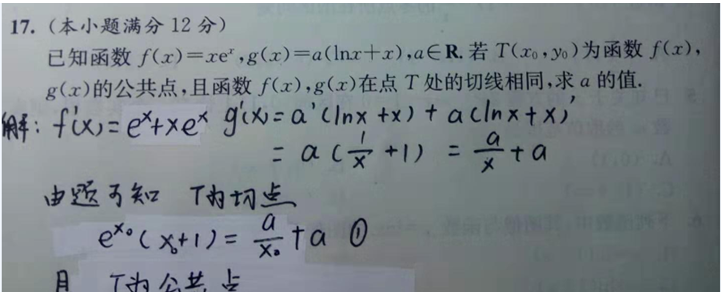 17.（本小题满分 12 分）
已知函数 f(x)=xeˣ,g(x)=a(lnx+x),a∈R.若 T(x₀,y₀)为函数 f(x),
g(x)的公共点,且函数 f(x),g(x)在点 T 处的切线相同,求 a 的值.
解: f'(x)=eˣ+xeˣ g'(x)=a'(lnx+x)+a(lnx+x)'
=a(1/x+1)=a/x+a
由题可知 T为切点
eˣ⁰(x₀+1)=a/x₀+a ①
且 T为公共点